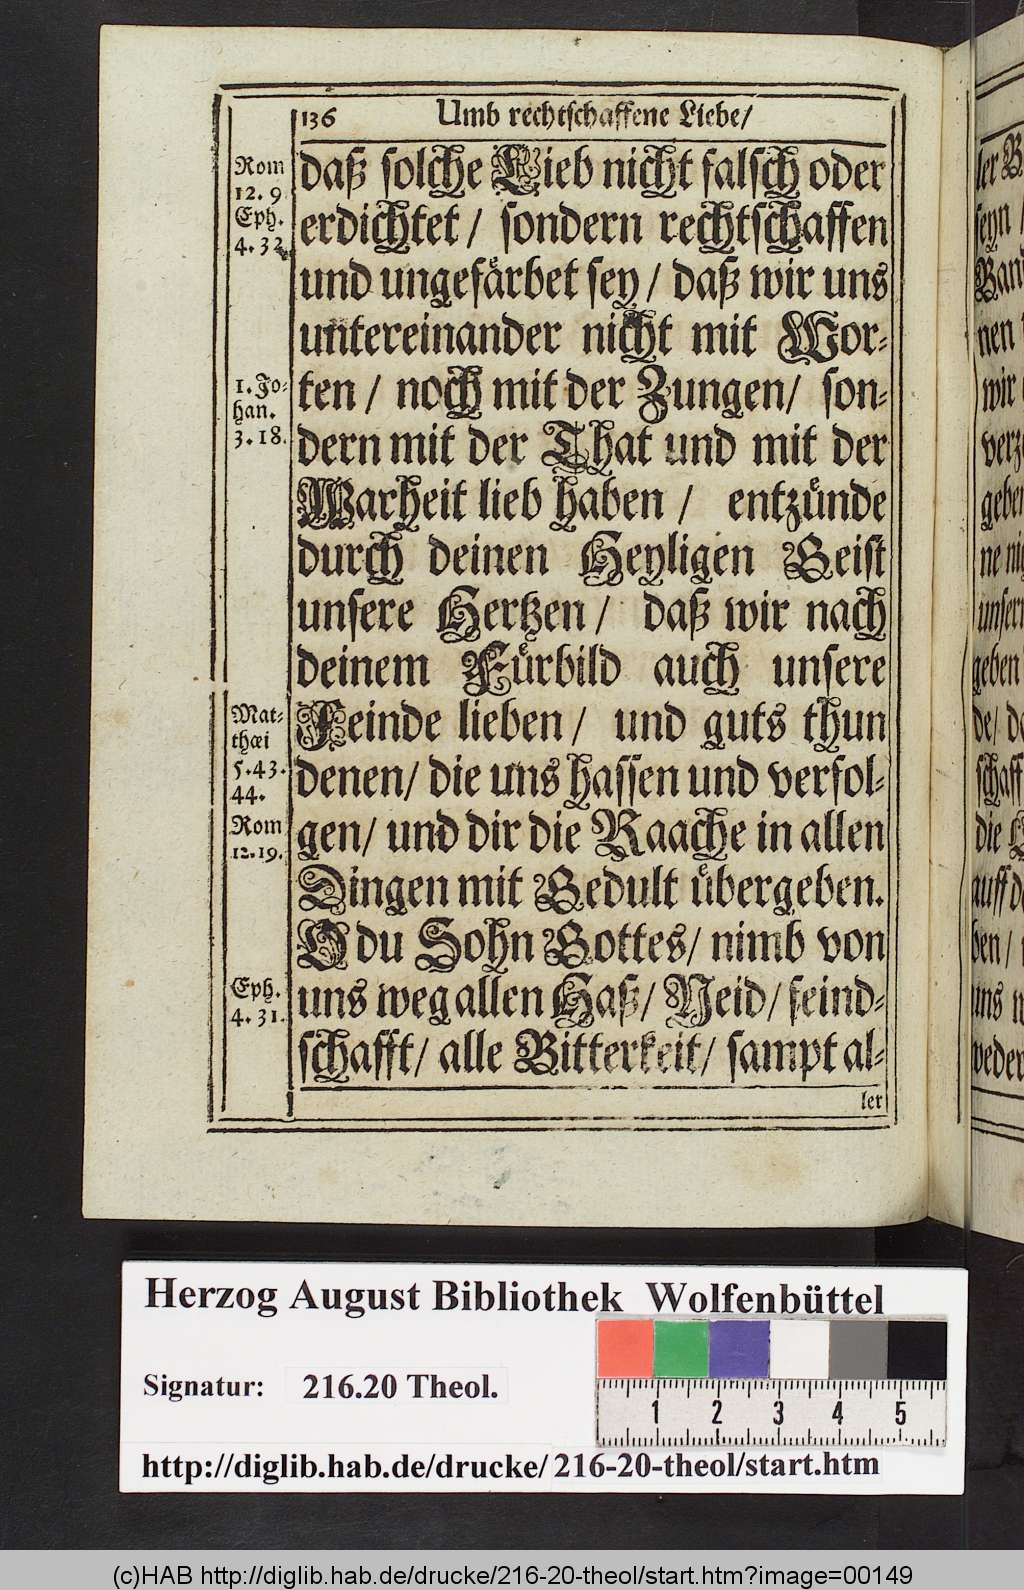 136 Umb rechtschaffene Liebe/
Rom
12. 9
Eph.
4. 32
daß solche Lieb nicht falsch oder
erdichtet / sondern rechtschaffen
und ungefärbet sey / daß wir uns
untereinander nicht mit Wor-
1. Jo-
han.
3. 18.
ten / noch mit der Zungen/ son-
dern mit der That und mit der
Warheit lieb haben / entzünde
durch deinen Heyligen Geist
unsere Hertzen / daß wir nach
deinem Fürbild auch unsere
Mat-
thæi
5. 43.
44.
Rom
12. 19.
Feinde lieben / und guts thun
denen/ die uns hassen und verfol-
gen/ und dir die Raache in allen
Dingen mit Gedult übergeben.
O du Sohn Gottes/ nimb von
Eph.
4. 31.
uns weg allen Haß/ Neid/ feind-
schafft/ alle Bitterkeit/ sampt al-
ler
ler
seyn /
nen
wir
geben
unsern
geben
de/
schaff
die
auff
ben/
uns
weder
Herzog August Bibliothek Wolfenbüttel
Signatur: 216.20 Theol.
1 2 3 4 5
http://diglib.hab.de/drucke/216-20-theol/start.htm
(c)HAB http://diglib.hab.de/drucke/216-20-theol/start.htm?image=00149